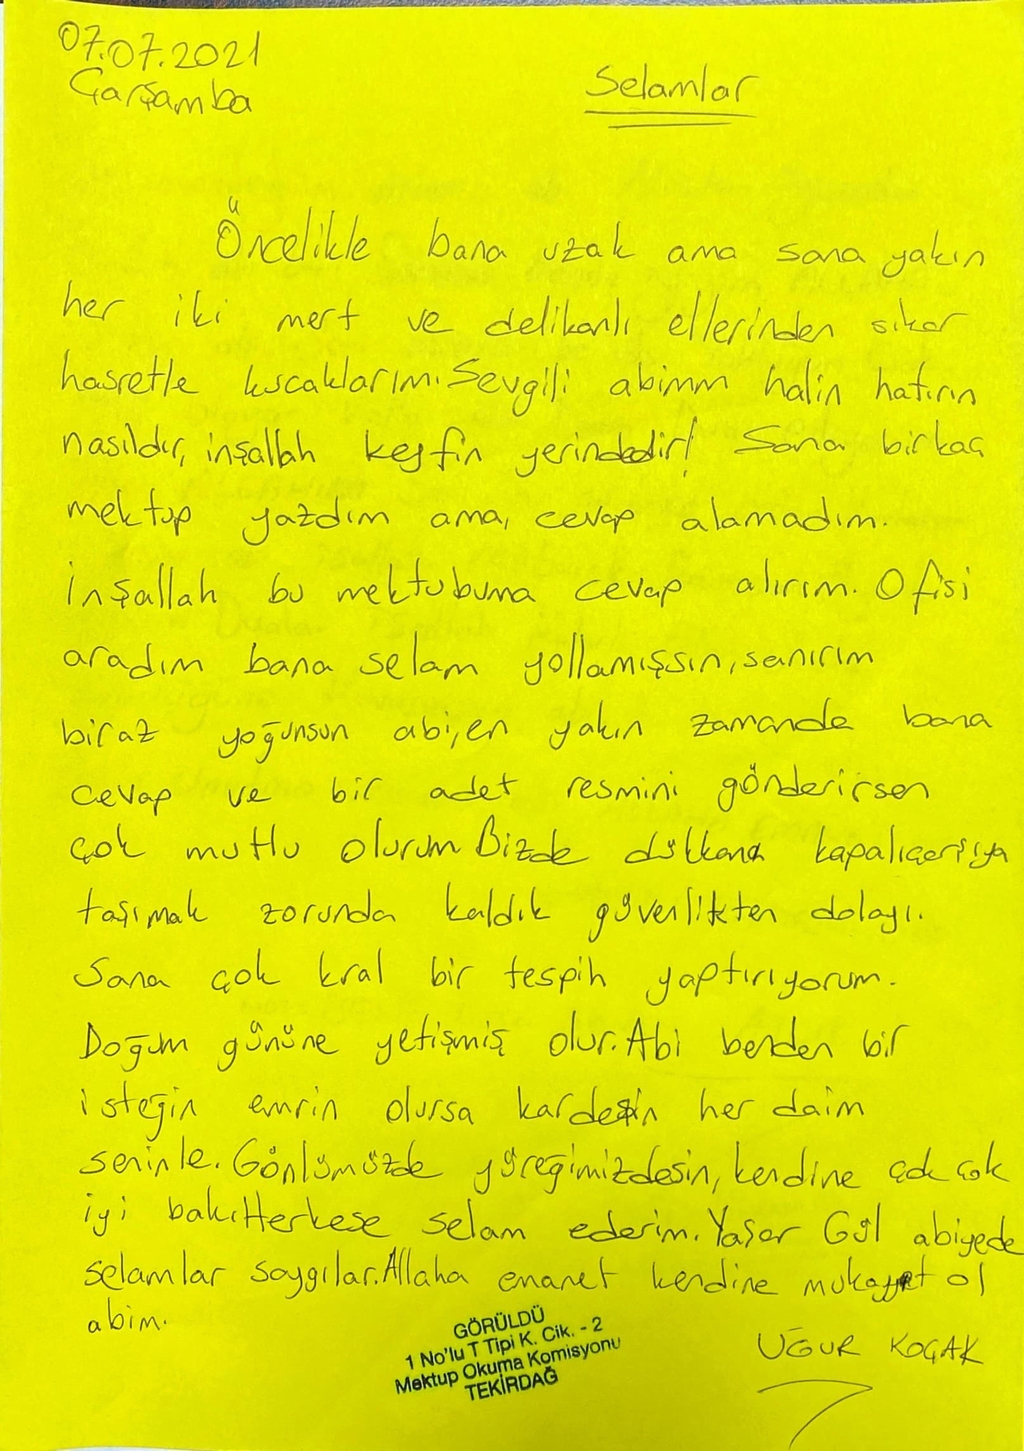 07.07.2021
Çarşamba
Selamlar
Öncelikle bana uzak ama sana yakın
her iki mert ve delikanlı ellerinden sıkar
hasretle kucaklarım. Sevgili abimm halin hatırın
nasıldır, inşallah keyfin yerindedir! Sana birkaç
mektup yazdım ama, cevap alamadım.
İnşallah bu mektubuma cevap alırım. Ofisi
aradım bana selam yollamışsın, sanırım
biraz yoğunsun abi, en yakın zamanda bana
cevap ve bir adet resmini gönderirsen
çok mutlu olurum Bizde dükkanı kapalıçarşıya
taşımak zorunda kaldık güvenlikten dolayı.
Sana çok kral bir tespih yaptırıyorum.
Doğum gününe yetişmiş olur. Abi benden bir
isteğin emrin olursa kardeşin her daim
seninle. Gönlümüzde yüreğimizdesin, kendine çok çok
iyi bak. Herkese selam ederim. Yaşar Gül abiyede
selamlar saygılar. Allaha emanet kendine mukayyet ol
abim.
UĞUR KOÇAK
GÖRÜLDÜ
1 No'lu T Tipi K. Cik. - 2
Mektup Okuma Komisyonu
TEKİRDAĞ